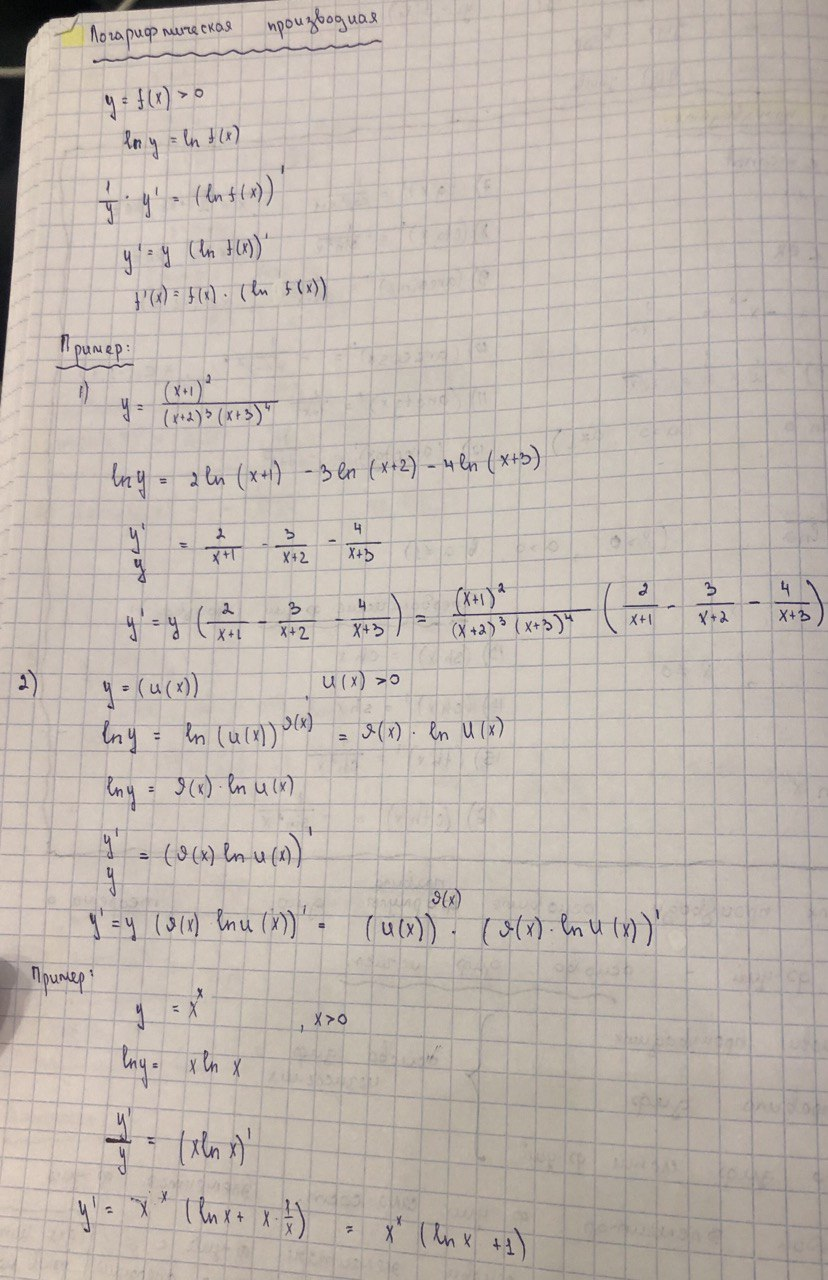 Логарифмическая производная
y = f(x) > 0
ln y = ln f(x)
1/y · y' = (ln f(x))'
y' = y (ln f(x))'
f'(x) = f(x) · (ln f(x))
Пример:
1) y = (x+1)² / (x+2)³ (x+3)⁴
ln y = 2 ln (x+1) - 3 ln (x+2) - 4 ln (x+3)
y'/y = 2/(x+1) - 3/(x+2) - 4/(x+3)
y' = y (2/(x+1) - 3/(x+2) - 4/(x+3)) = (x+1)² / (x+2)³ (x+3)⁴ (2/(x+1) - 3/(x+2) - 4/(x+3))
2) y = (u(x)) , u(x) > 0
ln y = ln (u(x))^ϑ(x) = ϑ(x) · ln u(x)
ln y = ϑ(x) · ln u(x)
y'/y = (ϑ(x) ln u(x))'
y' = y (ϑ(x) · ln u(x))' = (u(x))^ϑ(x) · (ϑ(x) · ln u(x))'
Пример:
y = x^x , x > 0
ln y = x ln x
y'/y = (x ln x)'
y' = x^x (ln x + x · 1/x) = x^x (ln x + 1)